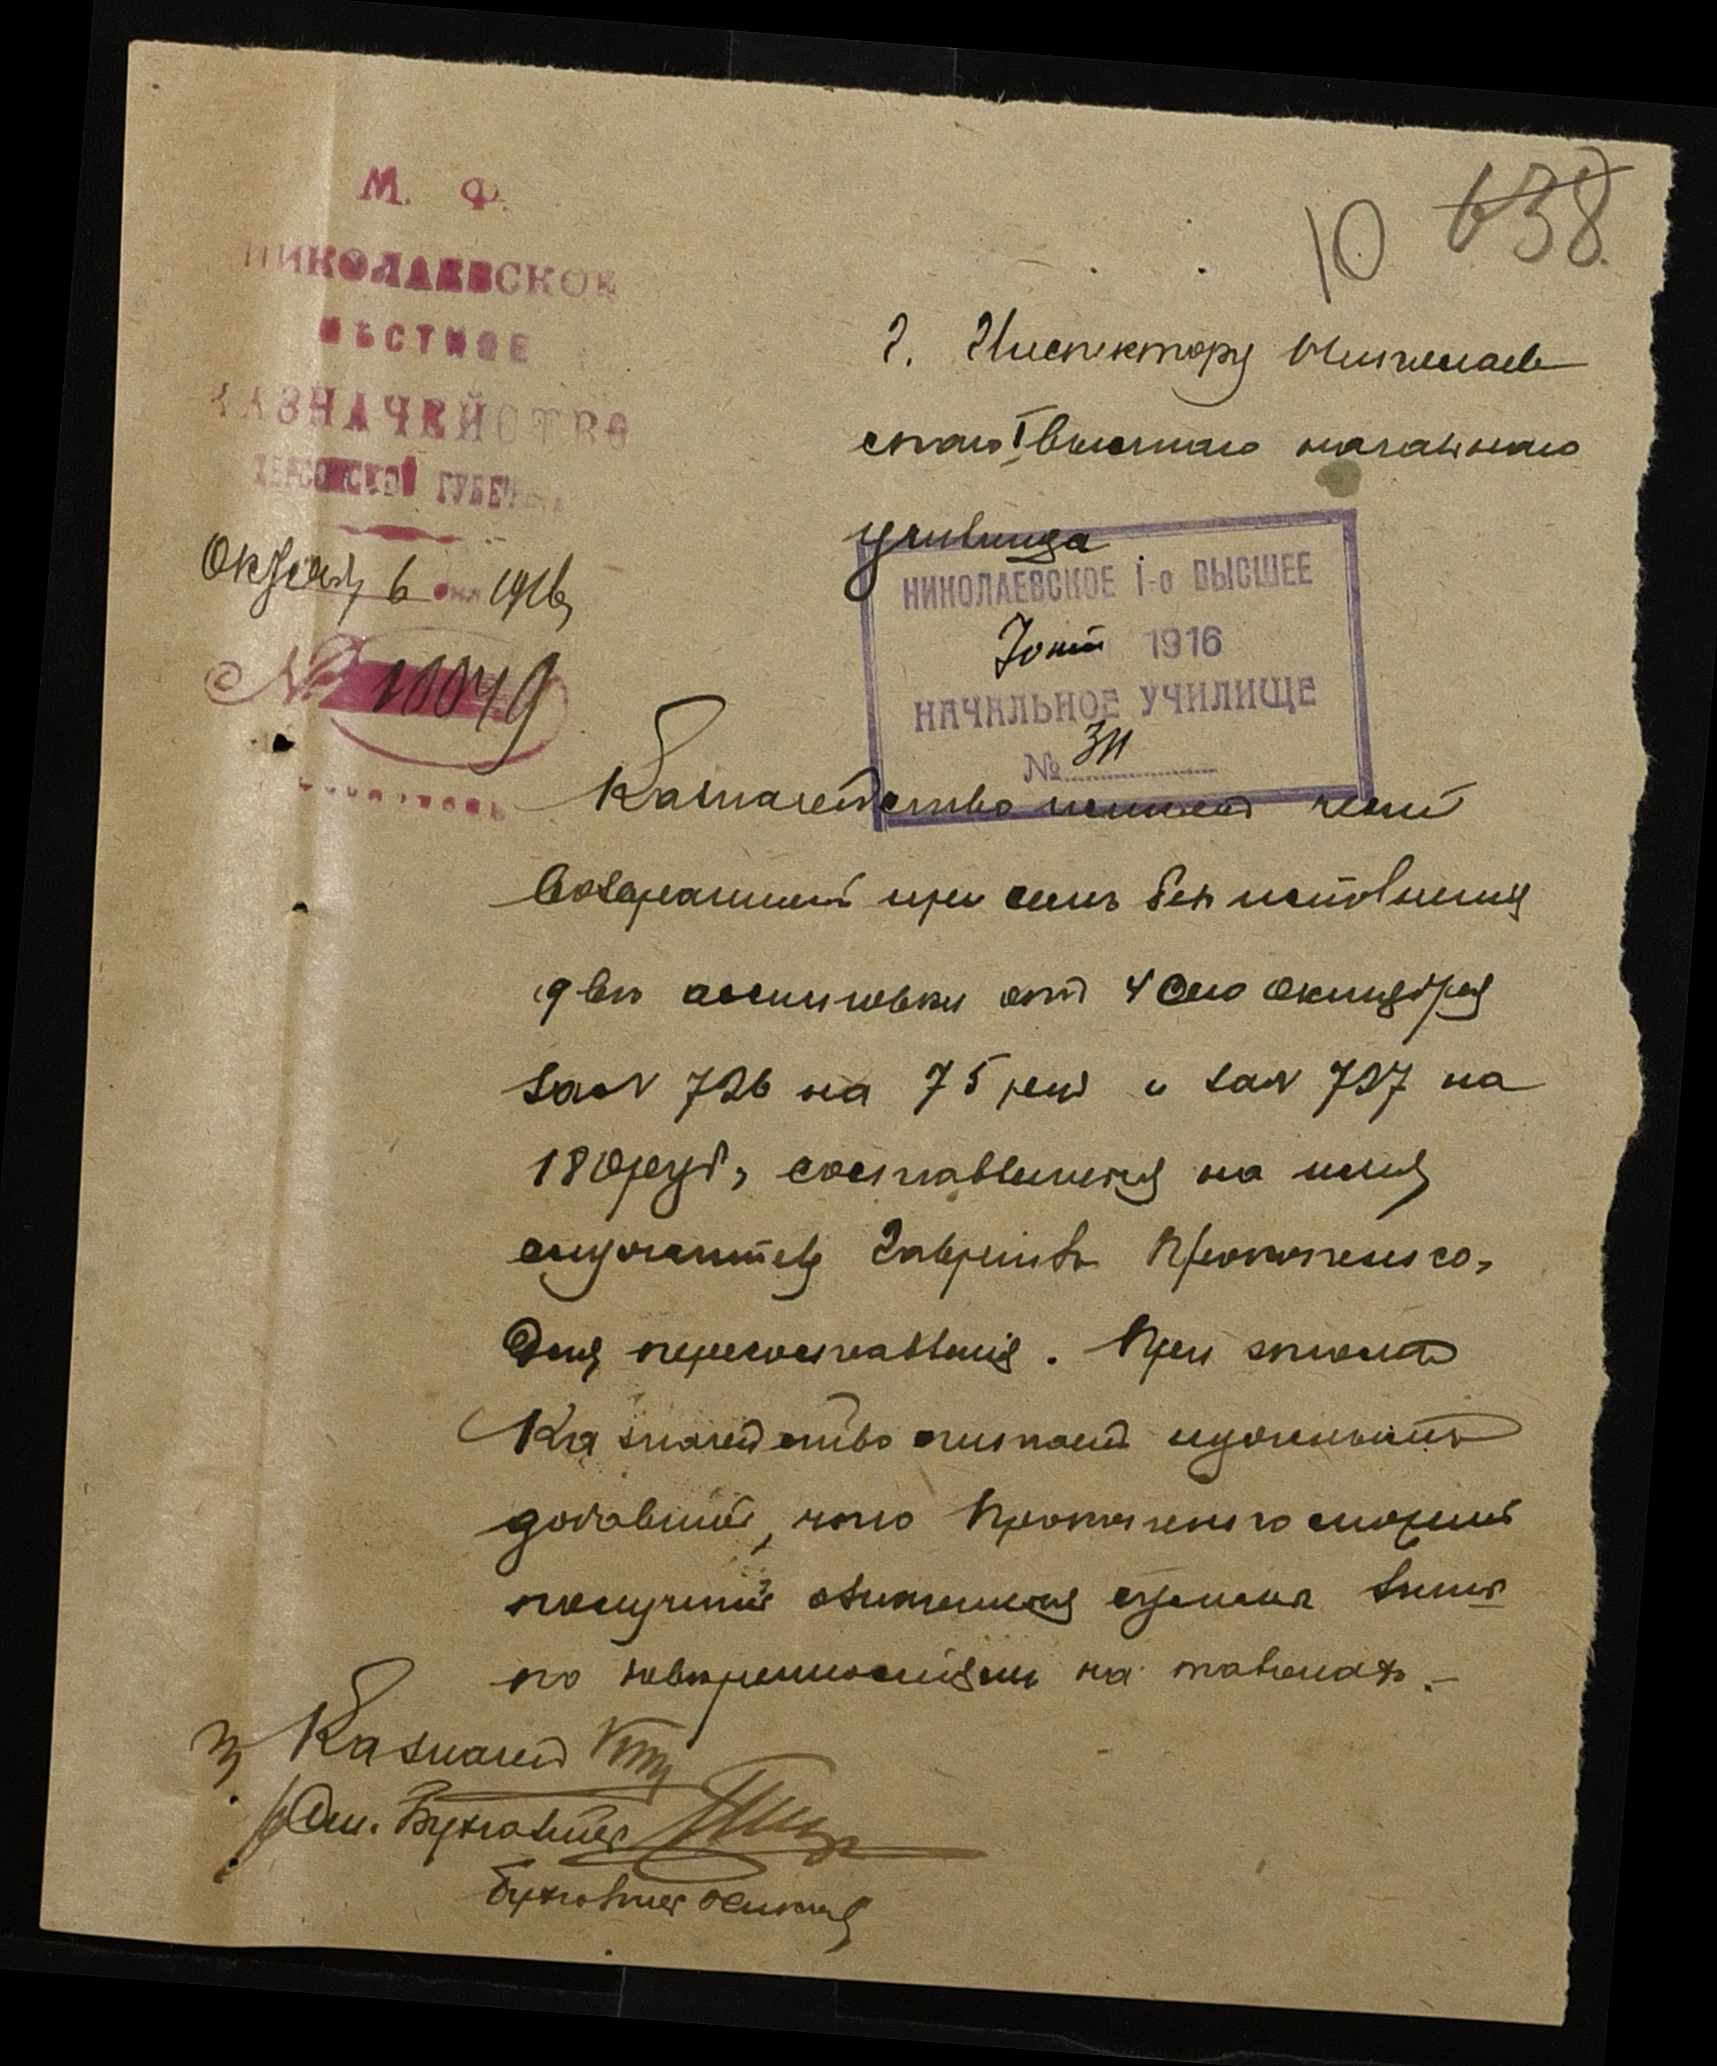 М. Ф.
НИКОЛАЕВСКОЕ
МѢСТНОЕ
КАЗНАЧЕЙСТВО
ХЕРСОНСКОЙ ГУБЕРН
Октября 6 дня 1916
№ 10049
10 638
Г. Инспектору Николаев
скаго I высшаго начальнаго
училища
НИКОЛАЕВСКОЕ I-о ВЫСШЕЕ
7 окт 1916
НАЧАЛЬНОЕ УЧИЛИЩЕ
№ 311
Казначейство имѣетъ честь
возвратить при семъ безъ исполненія
двѣ ассигновки отъ 4 сего октября
за № 726 на 75 руб и за № 727 на
180 руб, составленныя на имя
служителя Гавріила Прокопенко,
для пересоставленія. При этомъ
Казначейство считаетъ нужнымъ
добавить, что Прокопенко можетъ
получить означенныя суммы лишь
по довѣренностямъ на таковыхъ.-
Казначей
Ст. Бухгалтеръ
Бухгалтеръ